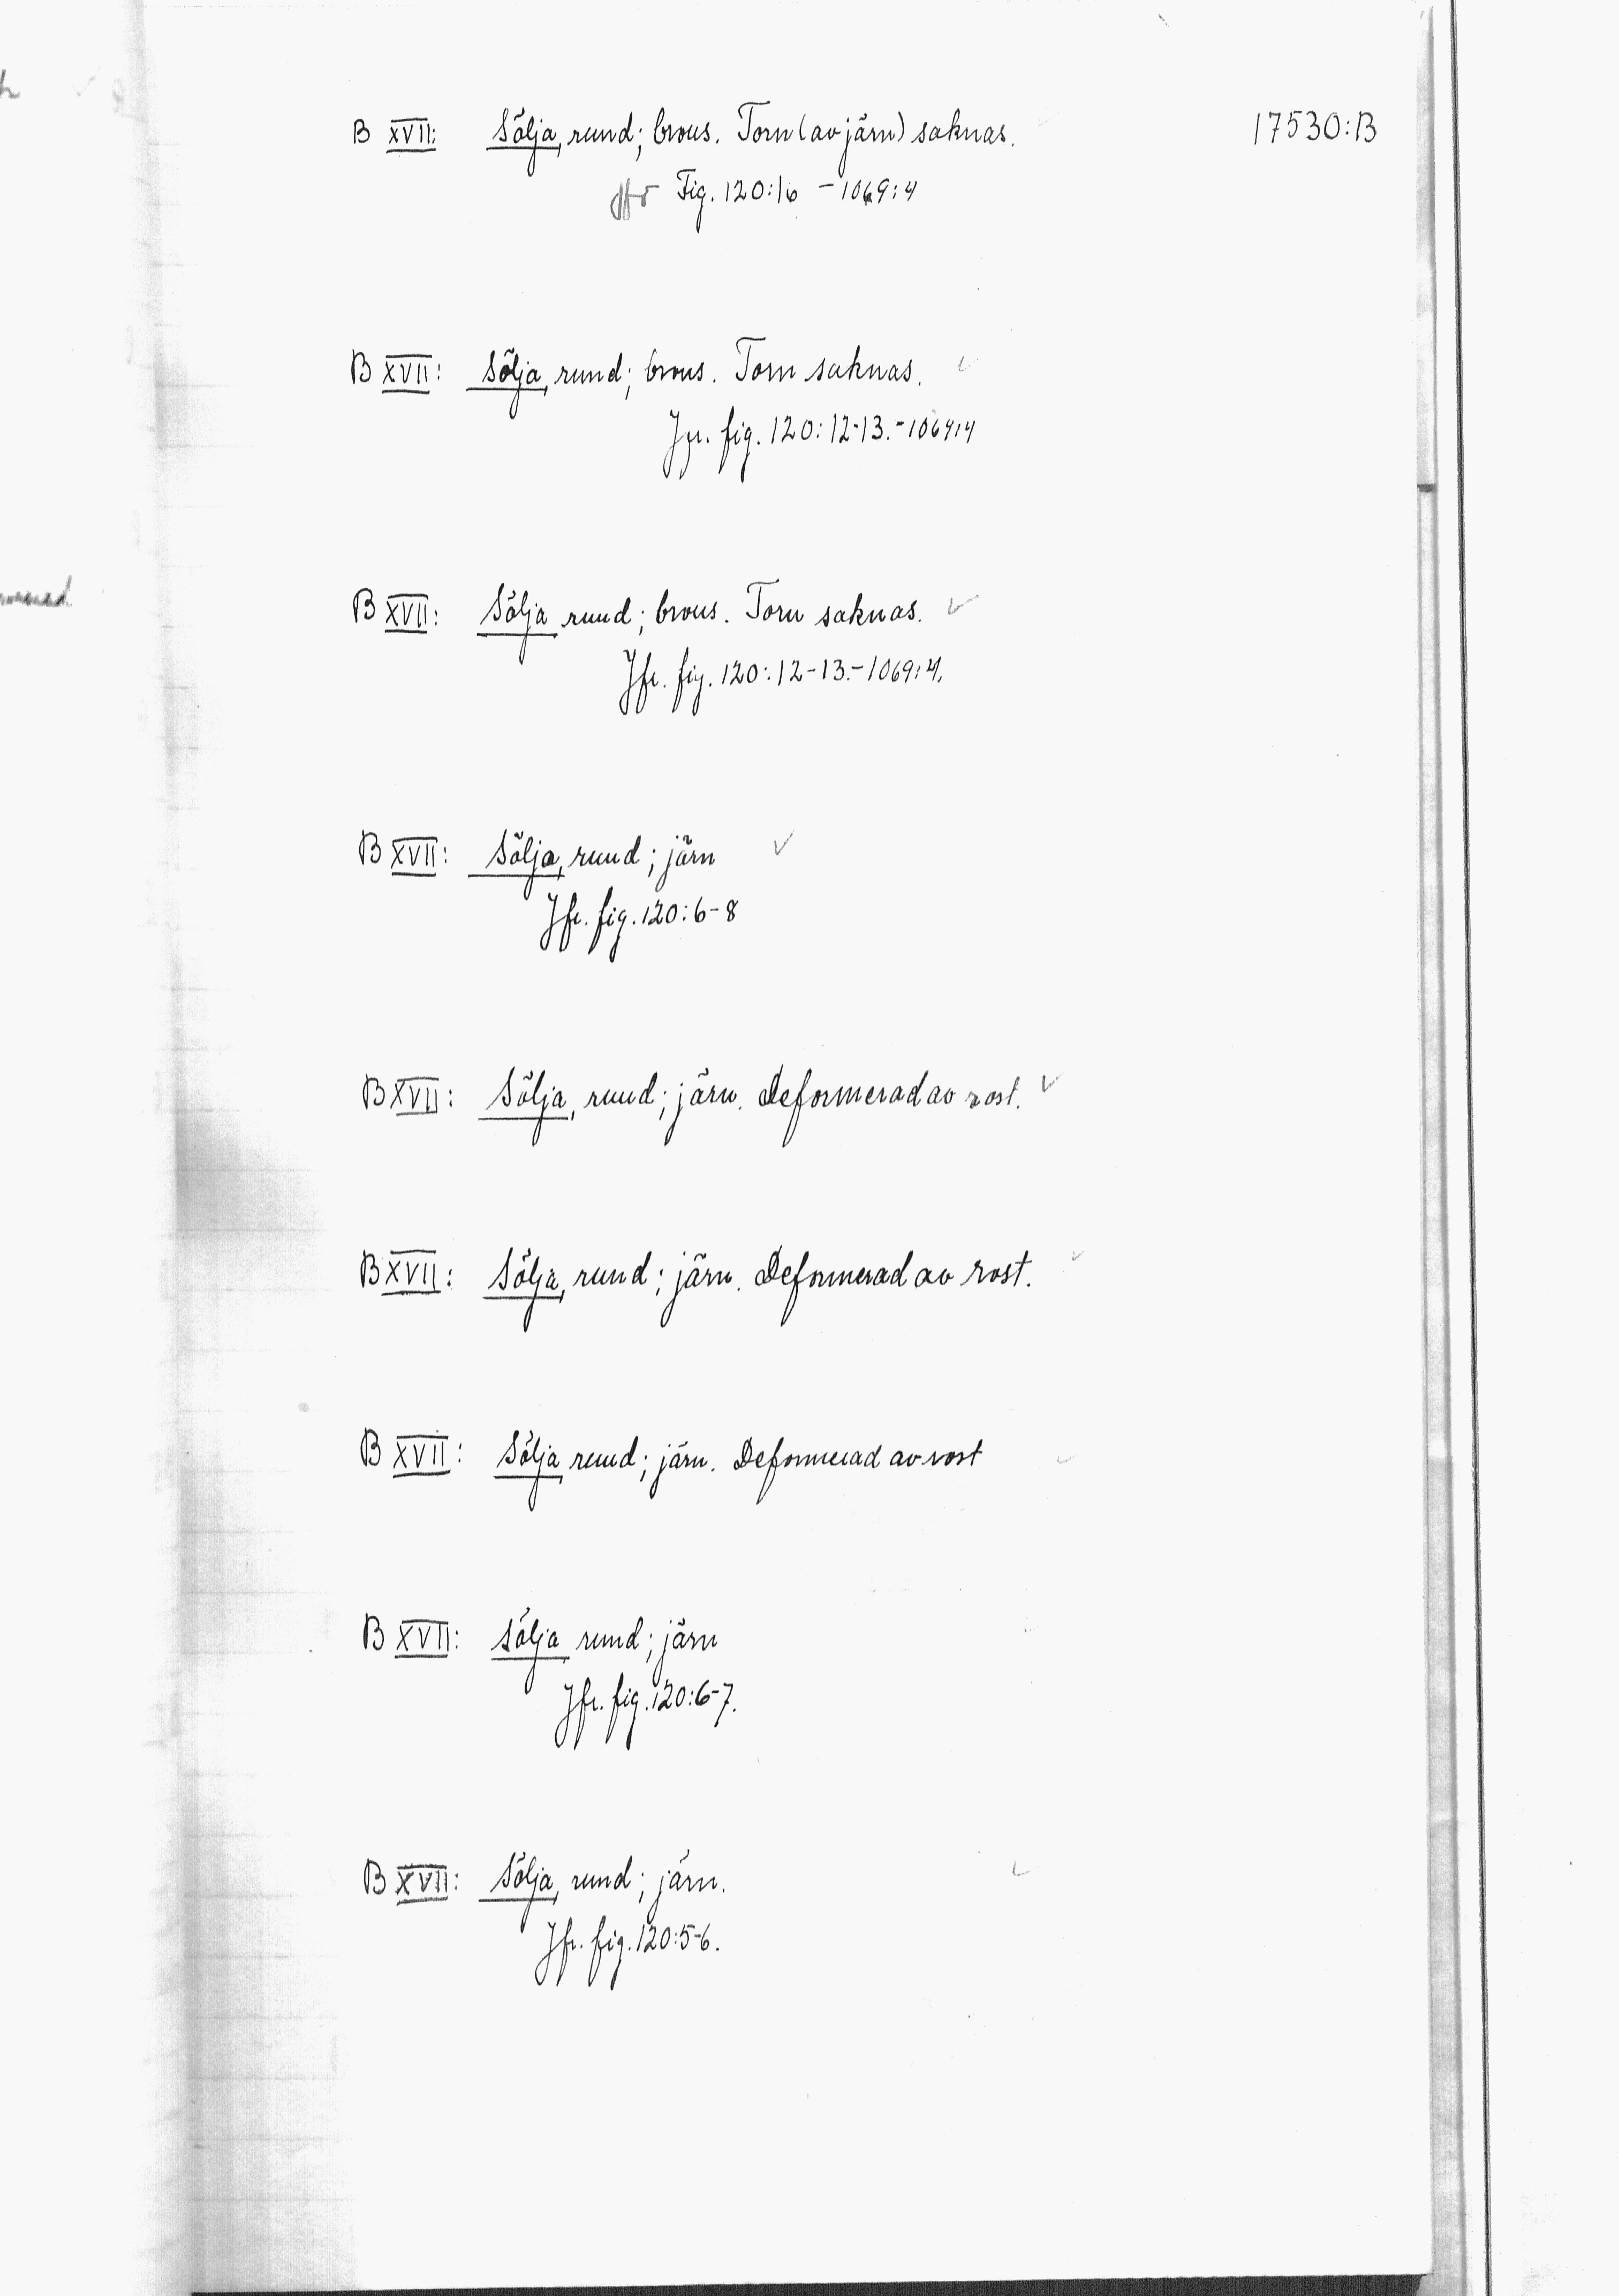 17530:B
B XVII: Sölja, rund; brons. Torn (av järn) saknas.
Jfr Fig. 120:16 - 1069:4
B XVII: Sölja, rund; brons. Torn saknas.
Jfr. fig. 120:12-13.-1069:4
B XVII: Sölja rund; brons. Torn saknas.
Jfr. fig. 120:12-13.-1069:4.
B XVII: Sölja, rund; järn
Jfr. fig. 120:6-8
B XVII: Sölja, rund; järn. Deformerad av rost.
B XVII: Sölja, rund; järn. Deformerad av rost.
B XVII: Sölja, rund; järn. Deformerad av rost
B XVII: Sölja rund; järn
Jfr. fig. 120:6-7.
B XVII: Sölja, rund; järn.
Jfr. fig. 120:5-6.